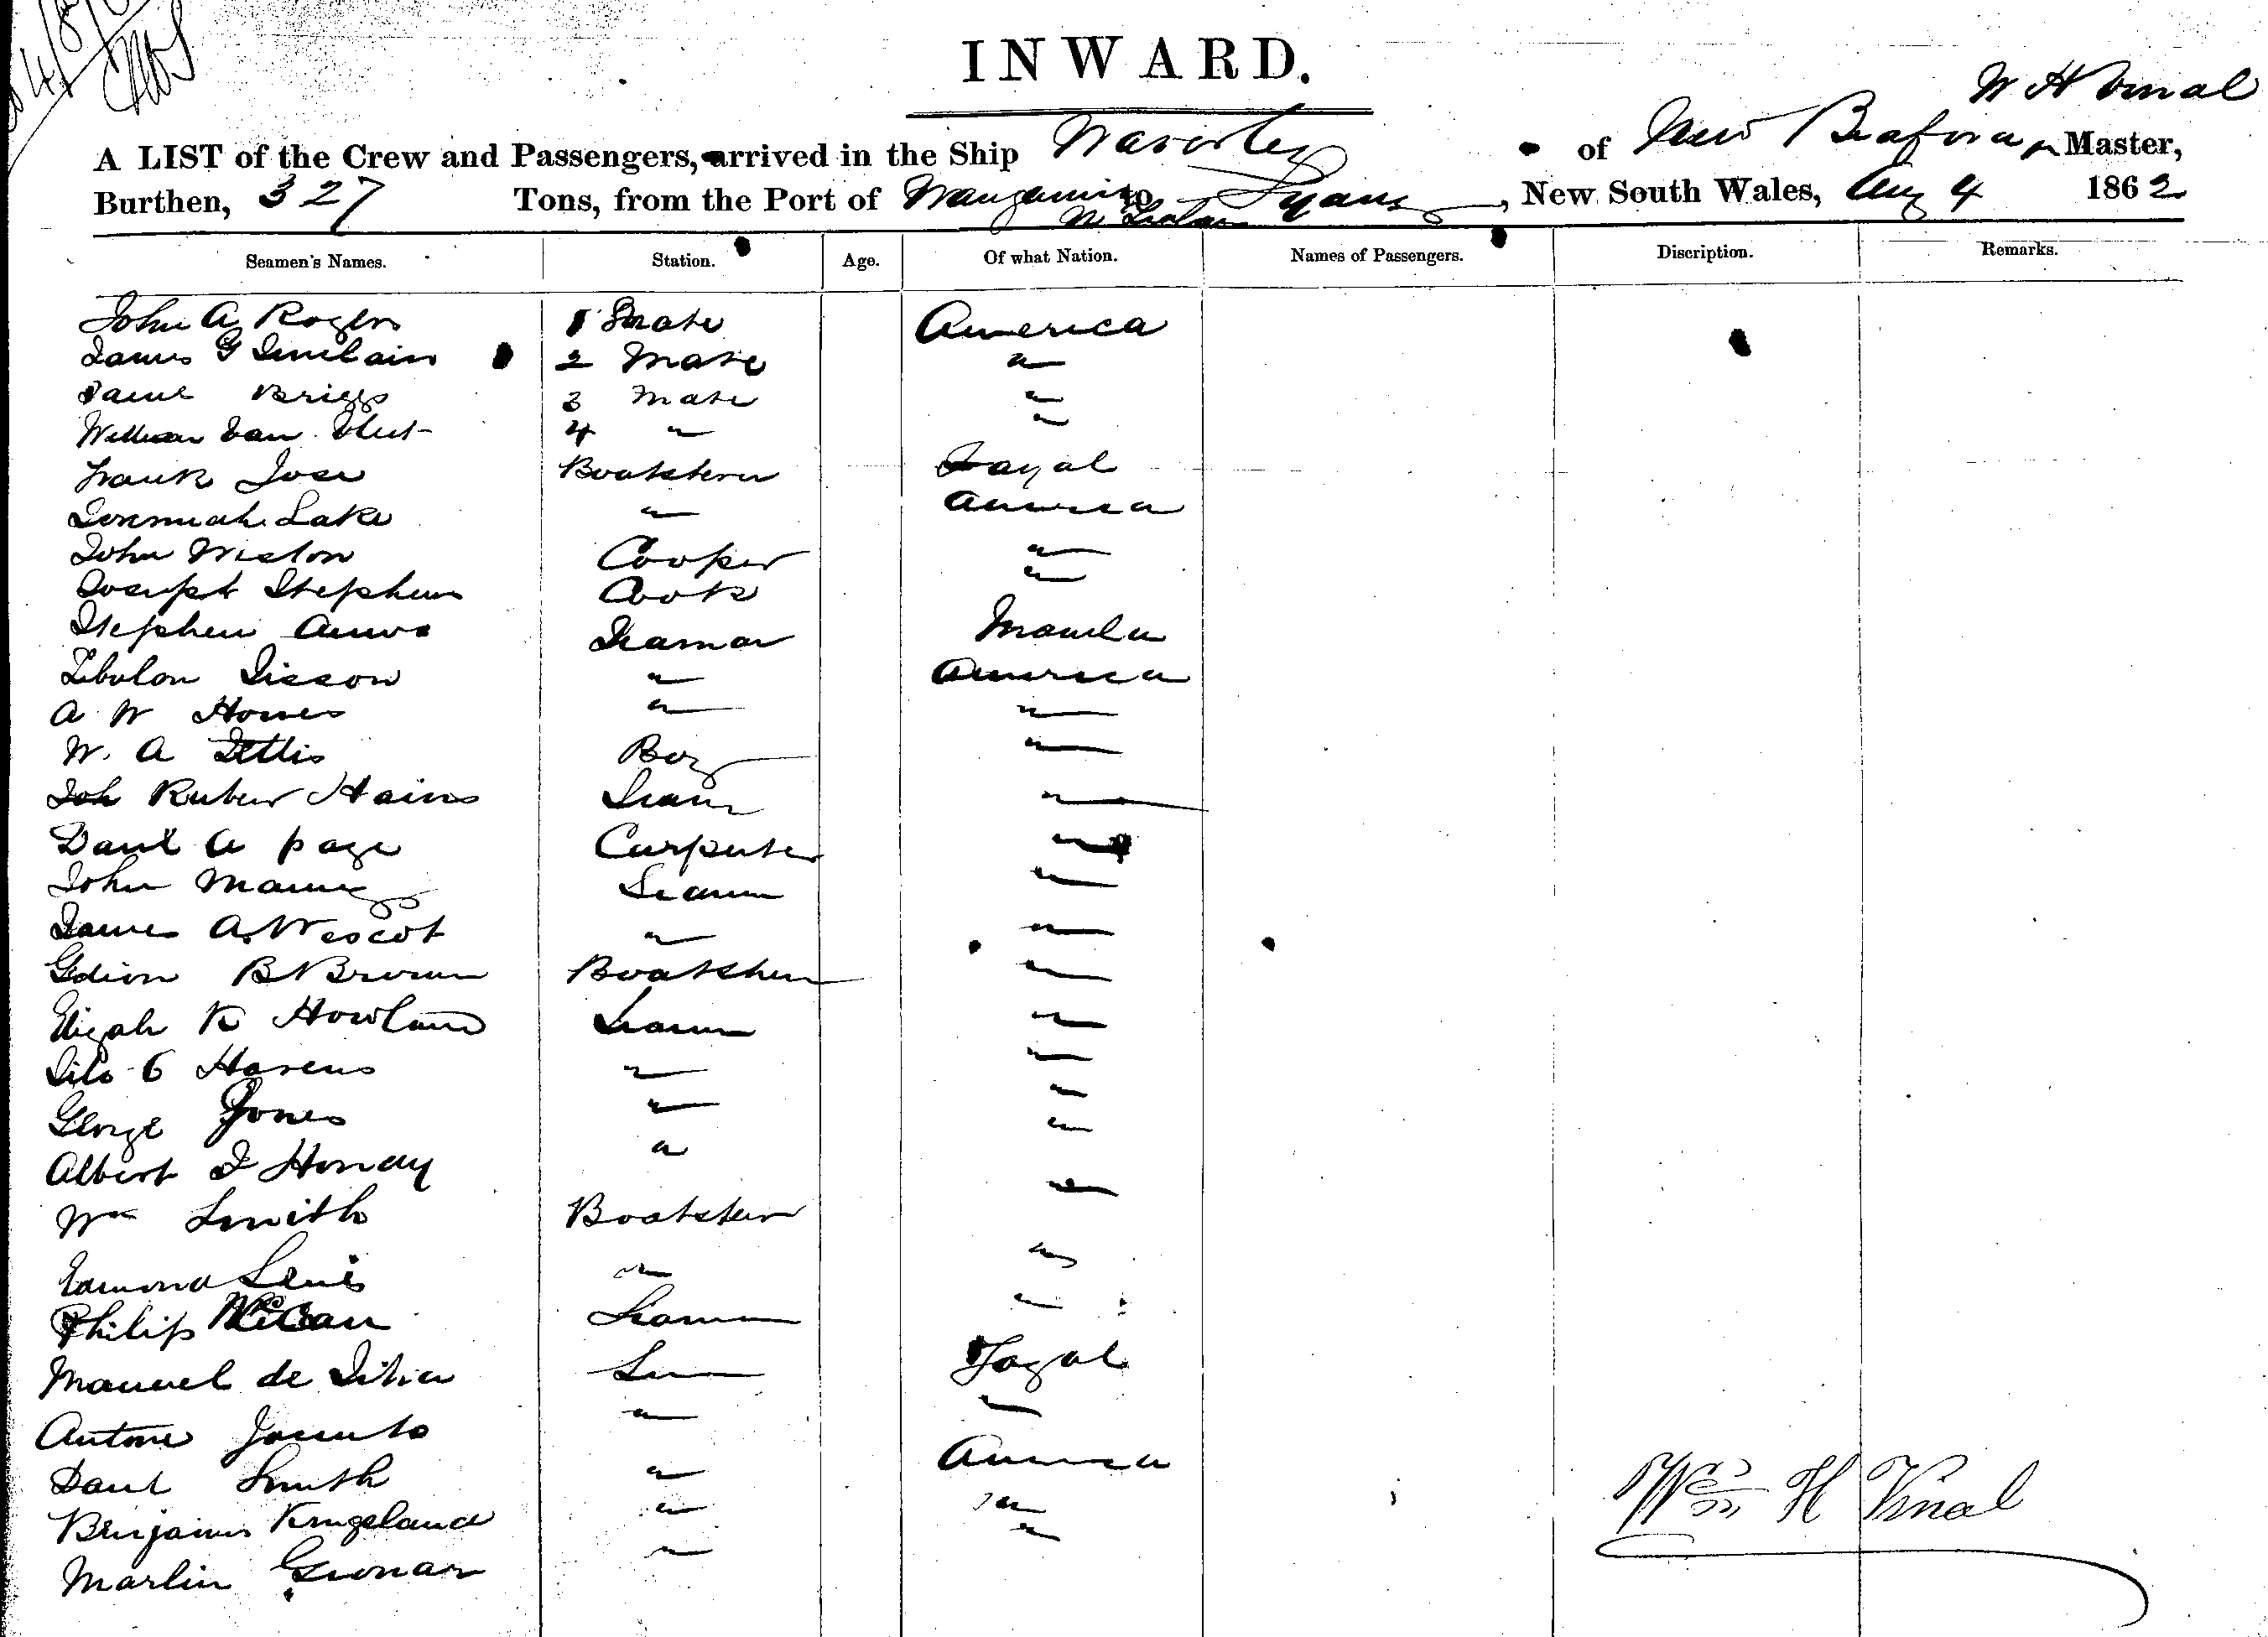 INWARD.
W H Vinal
A LIST of the Crew and Passengers, arrived in the Ship Waverley of New Bedford, Master,
Burthen, 327 Tons, from the Port of Wanganui to New South Wales, Aug 4 1862
N Zealand
Seamen's Names. Station. Age. Of what Nation. Names of Passengers. Discription. Remarks.
John A Rogers 1 Mate America
James G Sinclair 2 Mate "
Briggs 3 Mate "
William Van 4 " "
Frank Jose Boatsterer Fayal
Jeremiah Lake " America
John Weston Cooper "
Joseph Stephens Cook "
Stephen Seaman Manila
Zebulon Sisson " America
A W Howes " "
W. A Boy "
Joh Reuben Hains Seaman "
Danl A page Carpenter "
John Seaman "
James A Wescot " "
Gedion B Brown Boatsteer "
Elijah K Howland Seaman "
Havens " "
George Jones " "
Albert "
Wm Smith Boatsteer "
Edmond Lewis " "
Philip McCan Seaman "
Manuel de Silva Sea Fayal
Antone " "
Danl Smith " America
Benjamin Kingsland " "
Martin " "
Wm H Vinal